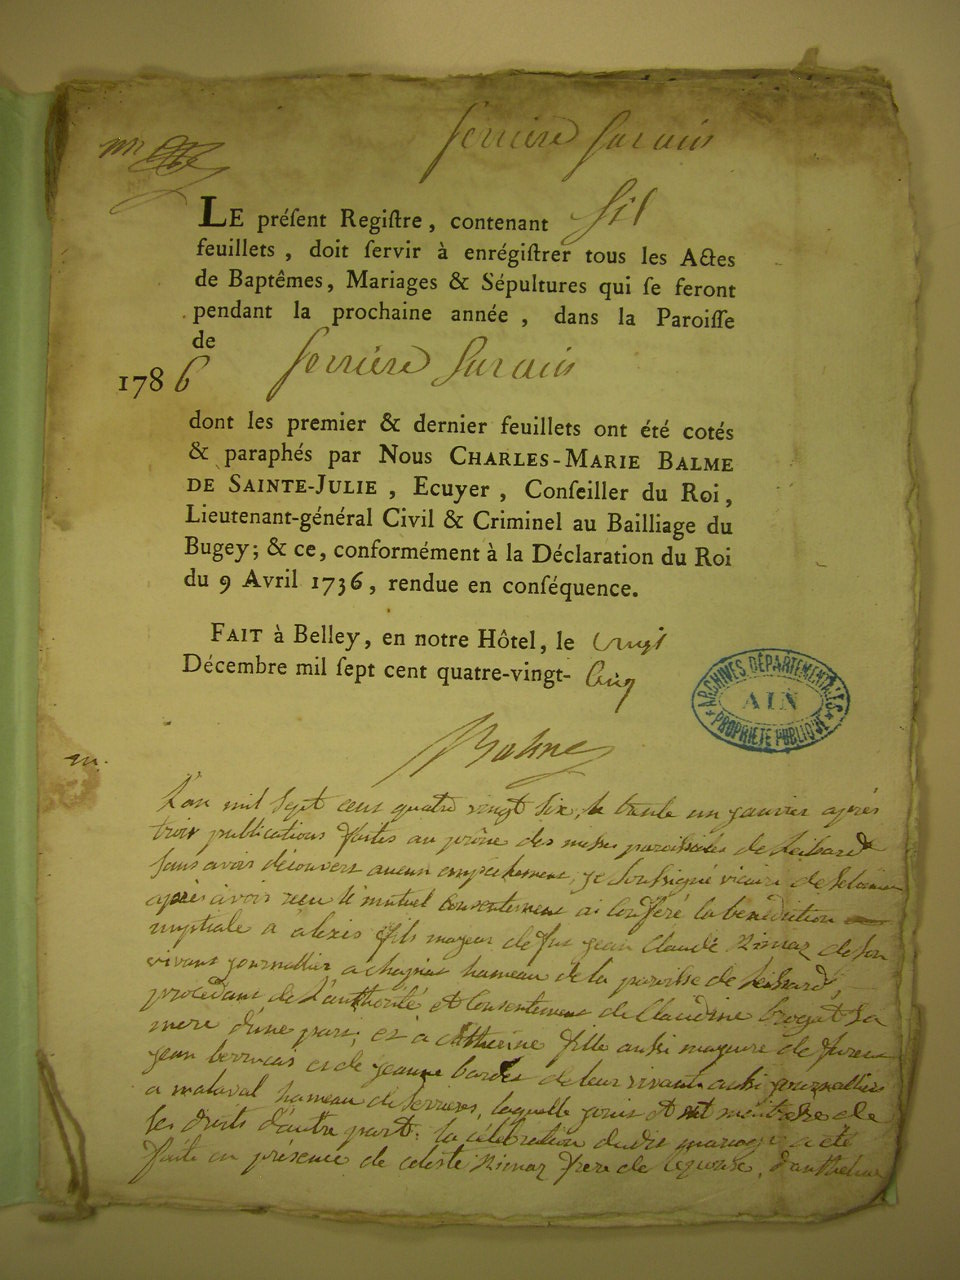 Serrière Sur ain
LE préſent Regiſtre, contenant Six
feuillets, doit ſervir à enrégiſtrer tous les Actes
de Baptêmes, Mariages & Sépultures qui ſe feront
pendant la prochaine année, dans la Paroiſſe
de
1786 Serrière Sur ain
dont les premier & dernier feuillets ont été cotés
& paraphés par Nous CHARLES-MARIE BALME
DE SAINTE-JULIE, Ecuyer, Conſeiller du Roi,
Lieutenant-général Civil & Criminel au Bailliage du
Bugey; & ce, conformément à la Déclaration du Roi
du 9 Avril 1736, rendue en conſéquence.
FAIT à Belley, en notre Hôtel, le vingt
Décembre mil ſept cent quatre-vingt-cinq
ARCHIVES DÉPARTEMENTALES
AIN
PROPRIÉTÉ PUBLIQUE
Balme
m.
L'an mil sept cens quatre vingt six, le trente un janvier après
trois publications faites au prône des messes paroissiales de
sans avoir découvert aucun empêchement, je soussigné vicaire de
après avoir reçu le mutuel consentement ai conféré la bénédiction
nuptiale à alexis fils majeur de fut jean Claude Rimaz de son
vivant journallier a hameau de la paroisse de
procédant de l'authorité et consentement de Claudine sa
mere d'une part, et a Catherine fille aussi majeure de
jean et de jeanne de leur vivant aussi journalliers
a malaval hameau de Serrieres, laquelle de
ses droits d'autre part: la célébration dudit mariage a été
faite en présence de celeste Rimaz frere de